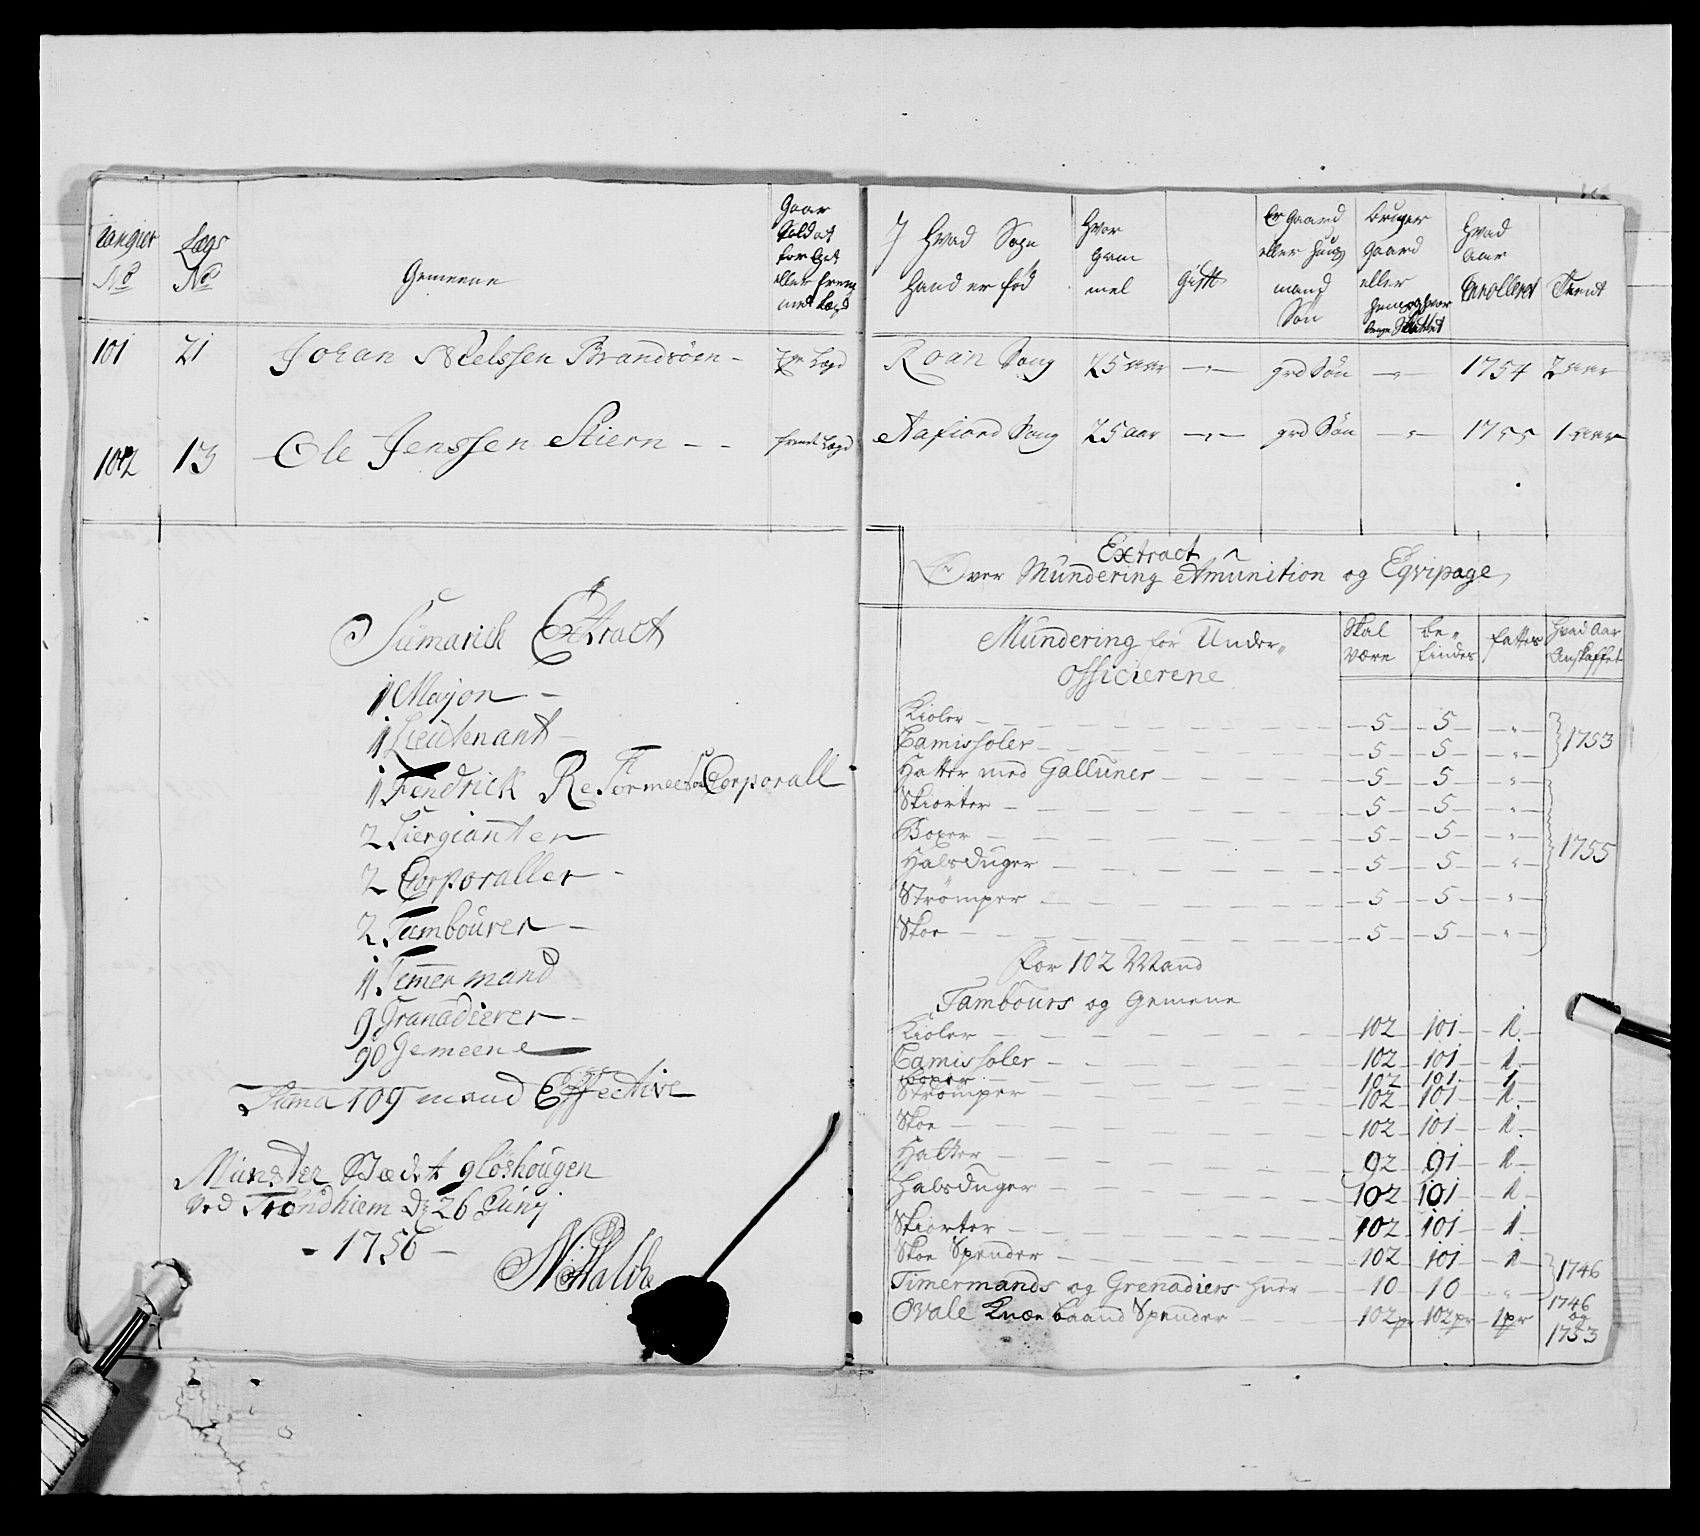 Rangier No
Lægs No
Gemeene
Gaar Soldat for Eget eller fremmet Lægd
I Hvad Sogn Hand er fød
Hvor Gammel
Gift
Er Gaard eller Huusmand Søn
Bruger Gaard eller
Hvad Aar Enrolleret
Tient
101 21 Johan Nielssen Brandsöen - Egn Lægd Roan Song 25 aar -"- grd Søn -"- 1754 2 aar
102 13 Ole Jenssen Stiern - - fremt Lægd Aafiord Song 25 aar -"- grd Søn -"- 1755 1 aar
Sumarish Extract
1 Mayor -
1 Lieutenant -
1 Fendrick Reformeed Corporall
2 Siergianter
2 Corporaller -
2 Tambourer -
1 Temmermand
9 Granadierer -
90 Gemeene
Suma 109 mand Effective
Münster Stædet gløshougen
ved Trondhiem D: 26 Junj
- 1756 -
Extract
Over Mundering Amunition og Eqvipage
Mundering for Under-
officierene
Skal være
be-findes
fattes
Hvad Aar Anskaffet
Kioler 5 5 "
Camissoler 5 5 " 1753
Hatter med Galluner 5 5 "
Skiorter 5 5 "
Boxer 5 5 "
Halsduger 5 5 " 1755
Strømper 5 5 "
Skoe 5 5 "
For 102 Mand
Tambours og Gemene
Kioler 102 101 1
Camissoler 102 101 1
Boxer 102 101 1
Strømper 102 101 1
Skoe 102 101 1
Hatter 92 91 1
Halsduger 102 101 1
Skiorter 102 101 1
Skoe Spender 102 101 1 1746
Timermands og Grenadiers Huer 10 10 "
Ovale Knæebaand Spender 102 pr 102 pr 1 pr 1746 og 1753